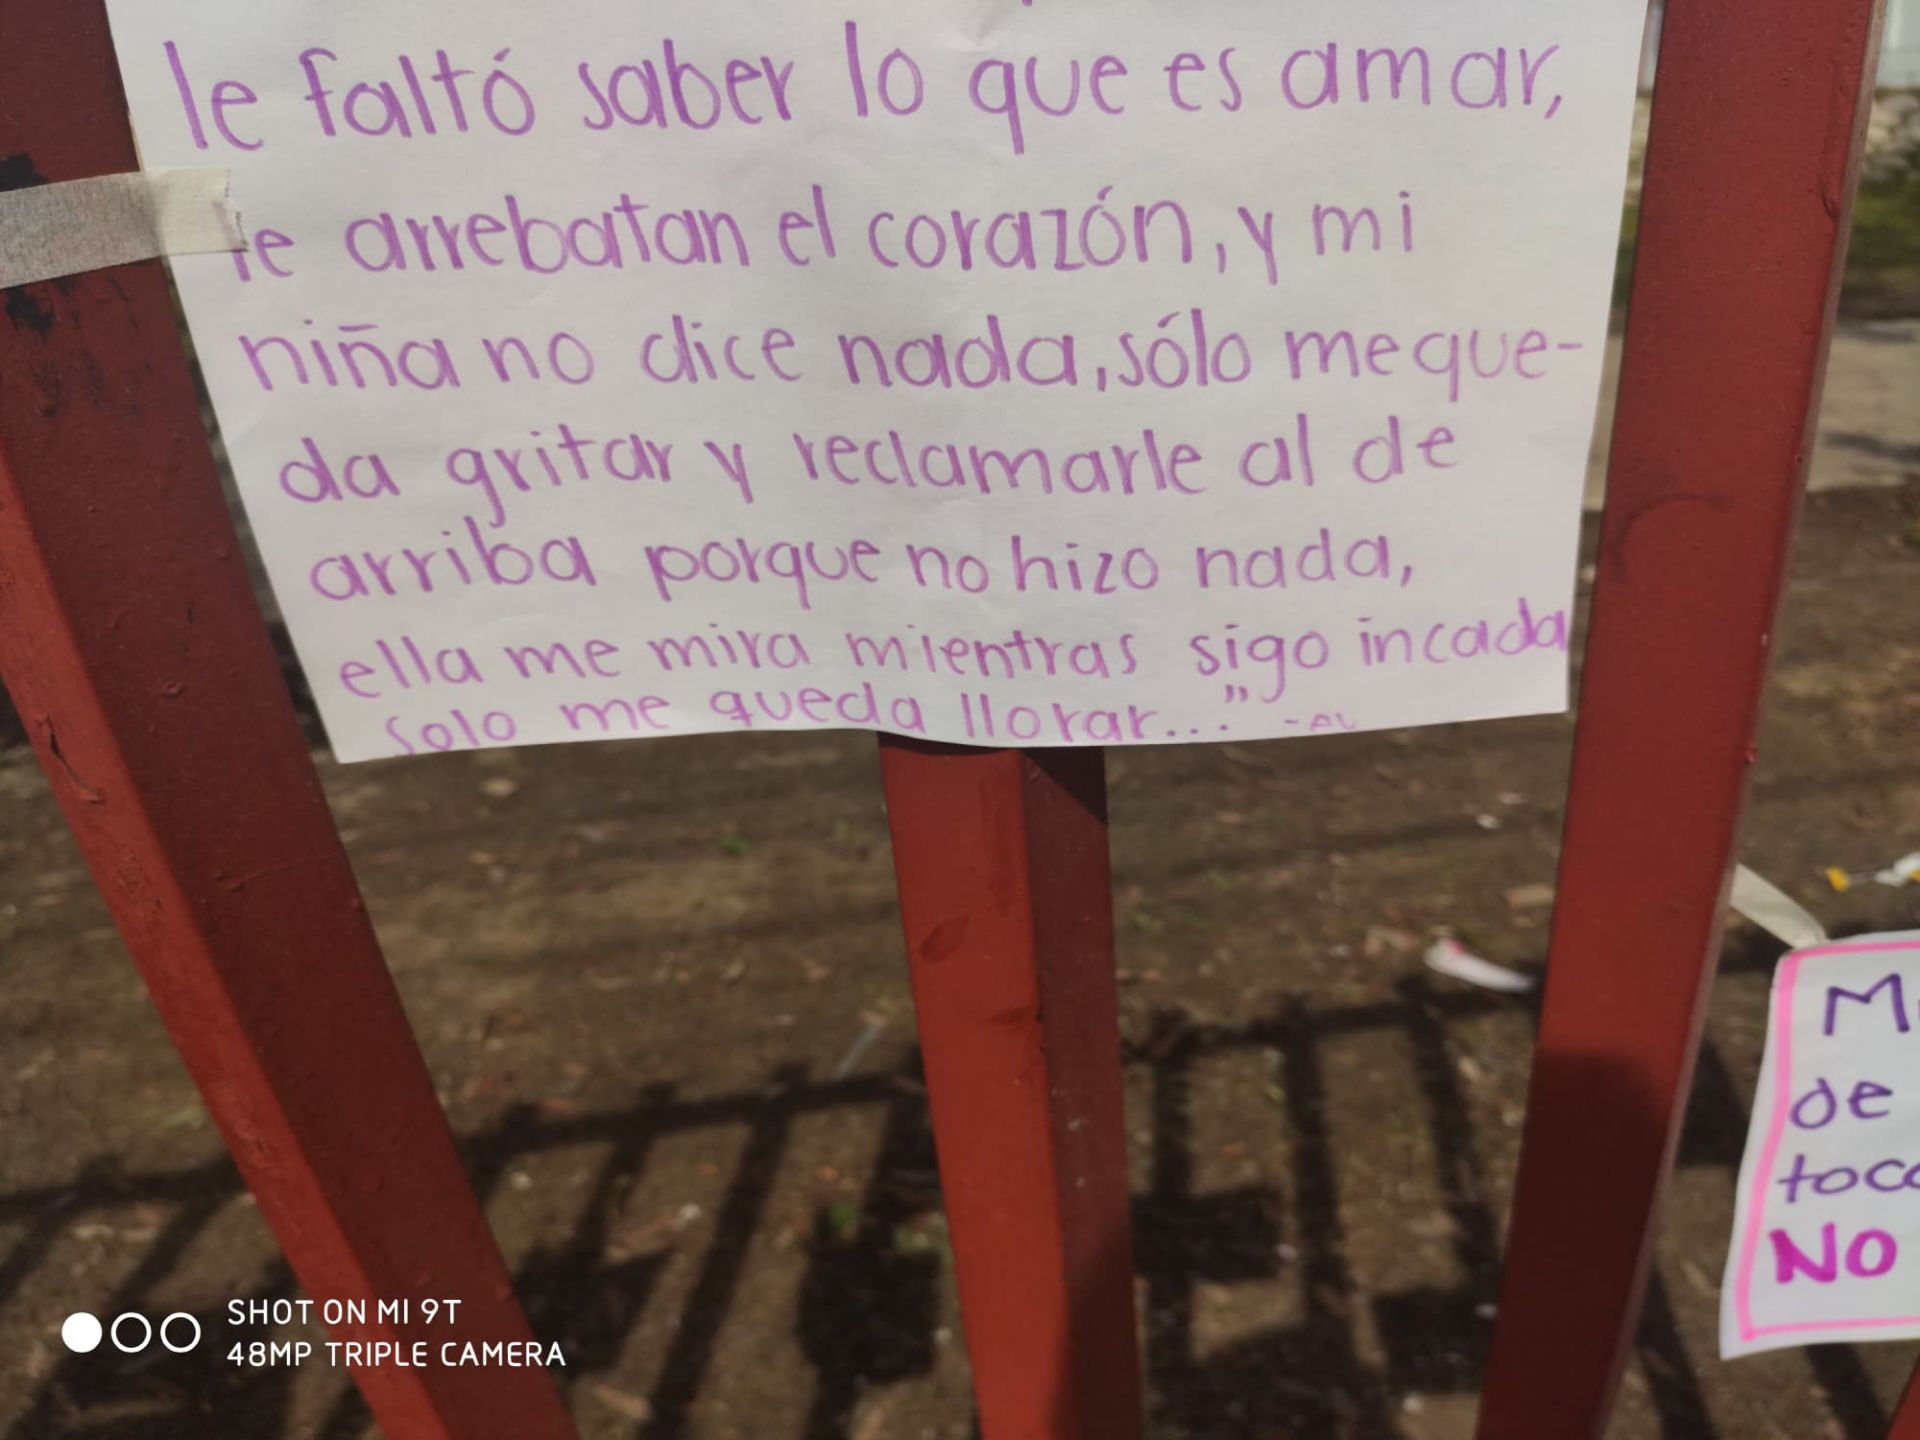 le faltó saber lo que es amar,
le arrebatan el corazón, y mi
niña no dice nada, sólo me que-
da gritar y reclamarle al de
arriba porque no hizo nada,
ella me mira mientras sigo incada
solo me queda llorar..."
de
NO
SHOT ON MI 9T
48MP TRIPLE CAMERA